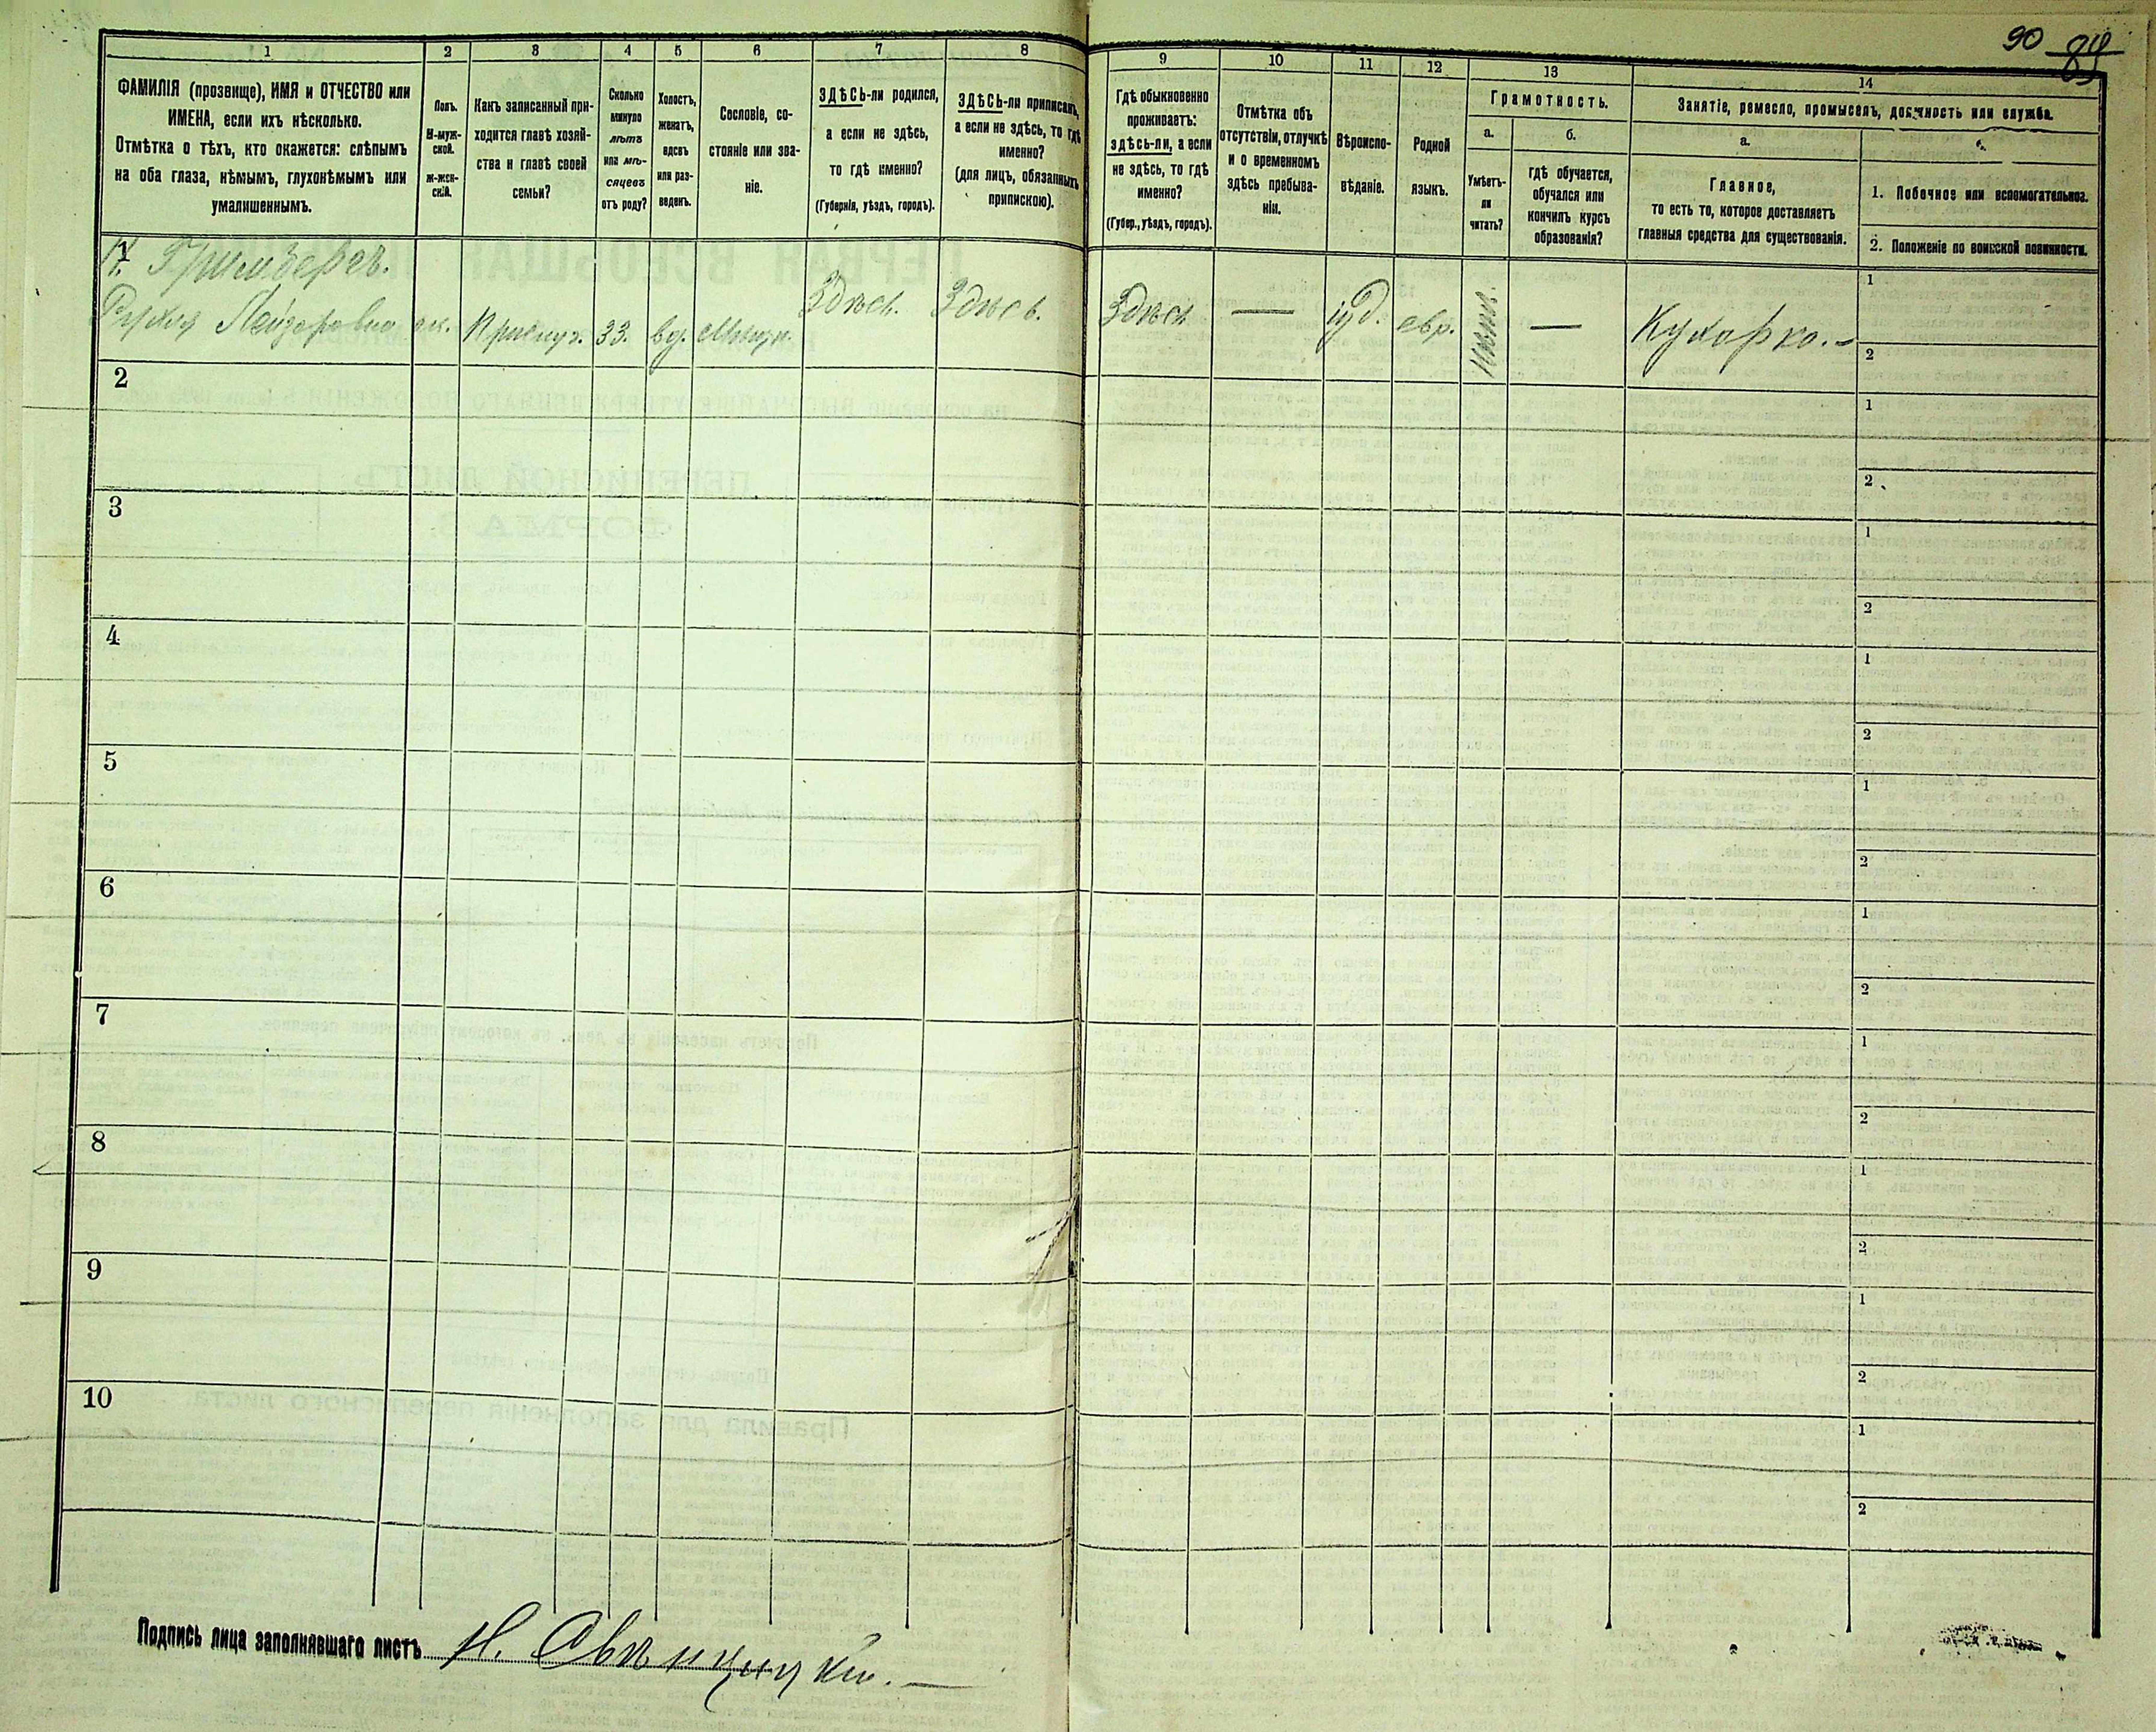 90 89
1 2 3 4 5 6 7 8 9 10 11 12 13 14
ФАМИЛІЯ (прозвище), ИМЯ и ОТЧЕСТВО или
ИМЕНА, если ихъ нѣсколько.
Отмѣтка о тѣхъ, кто окажется: слѣпымъ
на оба глаза, нѣмымъ, глухонѣмымъ или
умалишеннымъ.
Полъ.
М-муж-
ской.
Ж-жен-
скій.
Какъ записанный при-
ходится главѣ хозяй-
ства и главѣ своей
семьи?
Сколько
минуло
лѣтъ
или мѣ-
сяцевъ
отъ роду?
Холостъ,
женатъ,
вдовъ
или раз-
веденъ.
Сословіе, со-
стояніе или зва-
ніе.
ЗДѢСЬ-ли родился,
а если не здѣсь,
то гдѣ именно?
(Губернія, уѣздъ, городъ).
ЗДѢСЬ-ли приписанъ,
а если не здѣсь, то гдѣ
именно?
(для лицъ, обязанныхъ
припискою).
Гдѣ обыкновенно
проживаетъ:
здѣсь-ли, а если
не здѣсь, то гдѣ
именно?
(Губер., уѣздъ, городъ).
Отмѣтка объ
отсутствіи, отлучкѣ
и о временномъ
здѣсь пребыва-
ніи.
Вѣроиспо-
вѣданіе.
Родной
языкъ.
Грамотность.
а.
Умѣетъ-
ли
читать?
б.
гдѣ обучается,
обучался или
кончилъ курсъ
образованія?
Занятіе, ремесло, промыселъ, должность или служба.
а.
Главное,
то есть то, которое доставляетъ
главныя средства для существованія.
1. Побочное или вспомогательное.
2. Положеніе по воинской повинности.
Гринберг.
Рухля Лейзоровна ж. Прислуг. 33. вд. Мѣщ. Здѣсь. Здѣсь. Здѣсь — іуд. евр. — Кухарка. — 1
2
2 1
2
3 1
2
4 1
2
5 1
2
6 1
2
7 1
2
8 1
2
9 1
2
10 1
2
Подпись лица заполнявшаго листъ Н. Свѣнцицкій. —